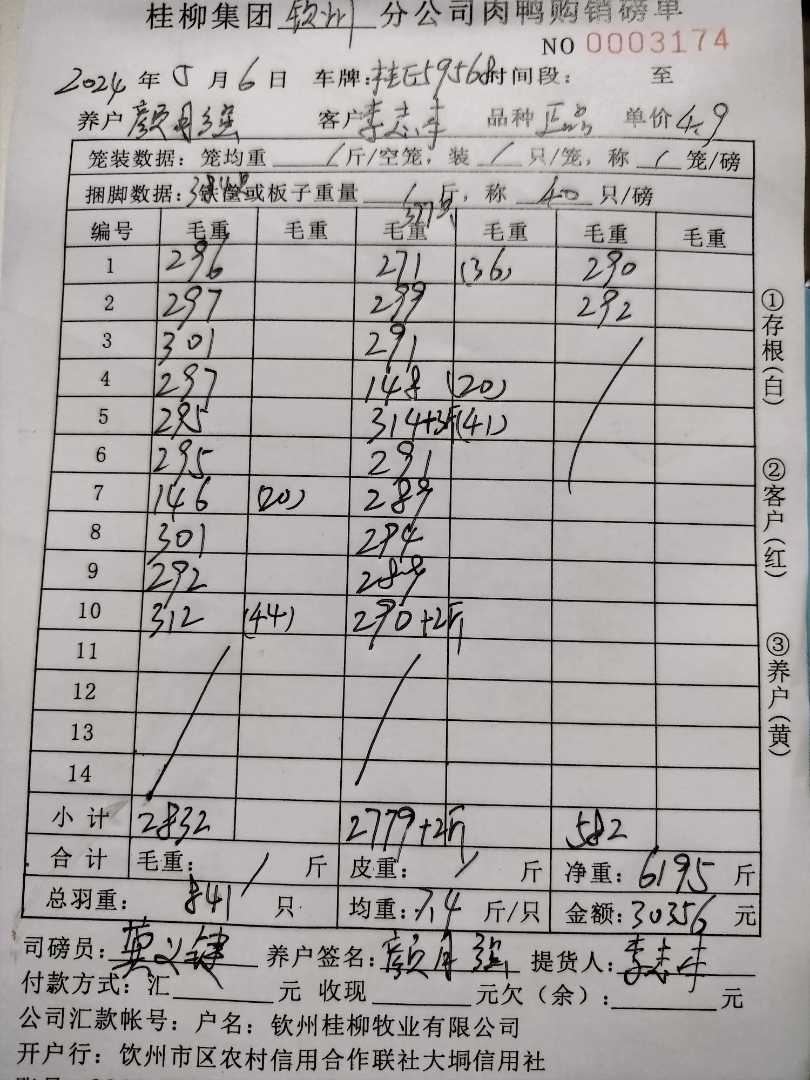 桂柳集团 钦州 分公司肉鸭购销磅单
NO 0003174
2024 年 5 月 6 日 车牌:桂E59568 时间段: 至
养户 颜月强 客户 李志年 品种 正品 单价 4.9
笼装数据: 笼均重 / 斤/空笼, 装 / 只/笼, 称 / 笼/磅
捆脚数据: 铁筐或板子重量 / 斤, 称 40 只/磅
377只
编号 毛重 毛重 毛重 毛重 毛重 毛重
1 296 271 (36) 290
2 297 299 292
3 301 291
4 297 148 (20)
5 295 314+3斤 (41)
6 295 291
7 146 (20) 289
8 301 294
9 292 289
10 312 (44) 290+2斤
11
12
13
14
小计 2832 2779+2斤 582
合计 毛重: / 斤 皮重: / 斤 净重: 6195 斤
总羽重: 841 只 均重: 7.4 斤/只 金额: 30356 元
司磅员: 莫义健 养户签名: 颜月强 提货人: 李志年
付款方式: 汇 元 收现 元欠(余): 元
公司汇款帐号: 户名: 钦州桂柳牧业有限公司
开户行: 钦州市区农村信用合作联社大垌信用社
①存根(白)
②客户(红)
③养户(黄)